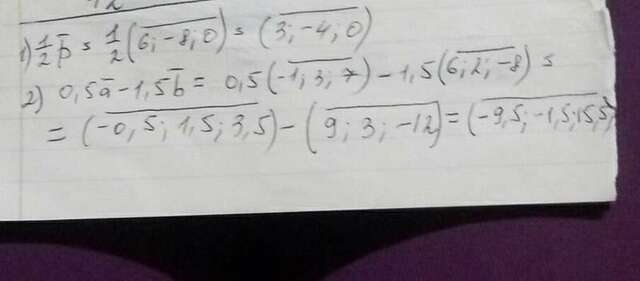 1) 1/2 p̄ = 1/2 (6; -8; 0) = (3; -4; 0)
2) 0,5ā - 1,5b̄ = 0,5(-1; 3; 7) - 1,5(6; 2; -8) =
= (-0,5; 1,5; 3,5) - (9; 3; -12) = (-9,5; -1,5; 15,5)